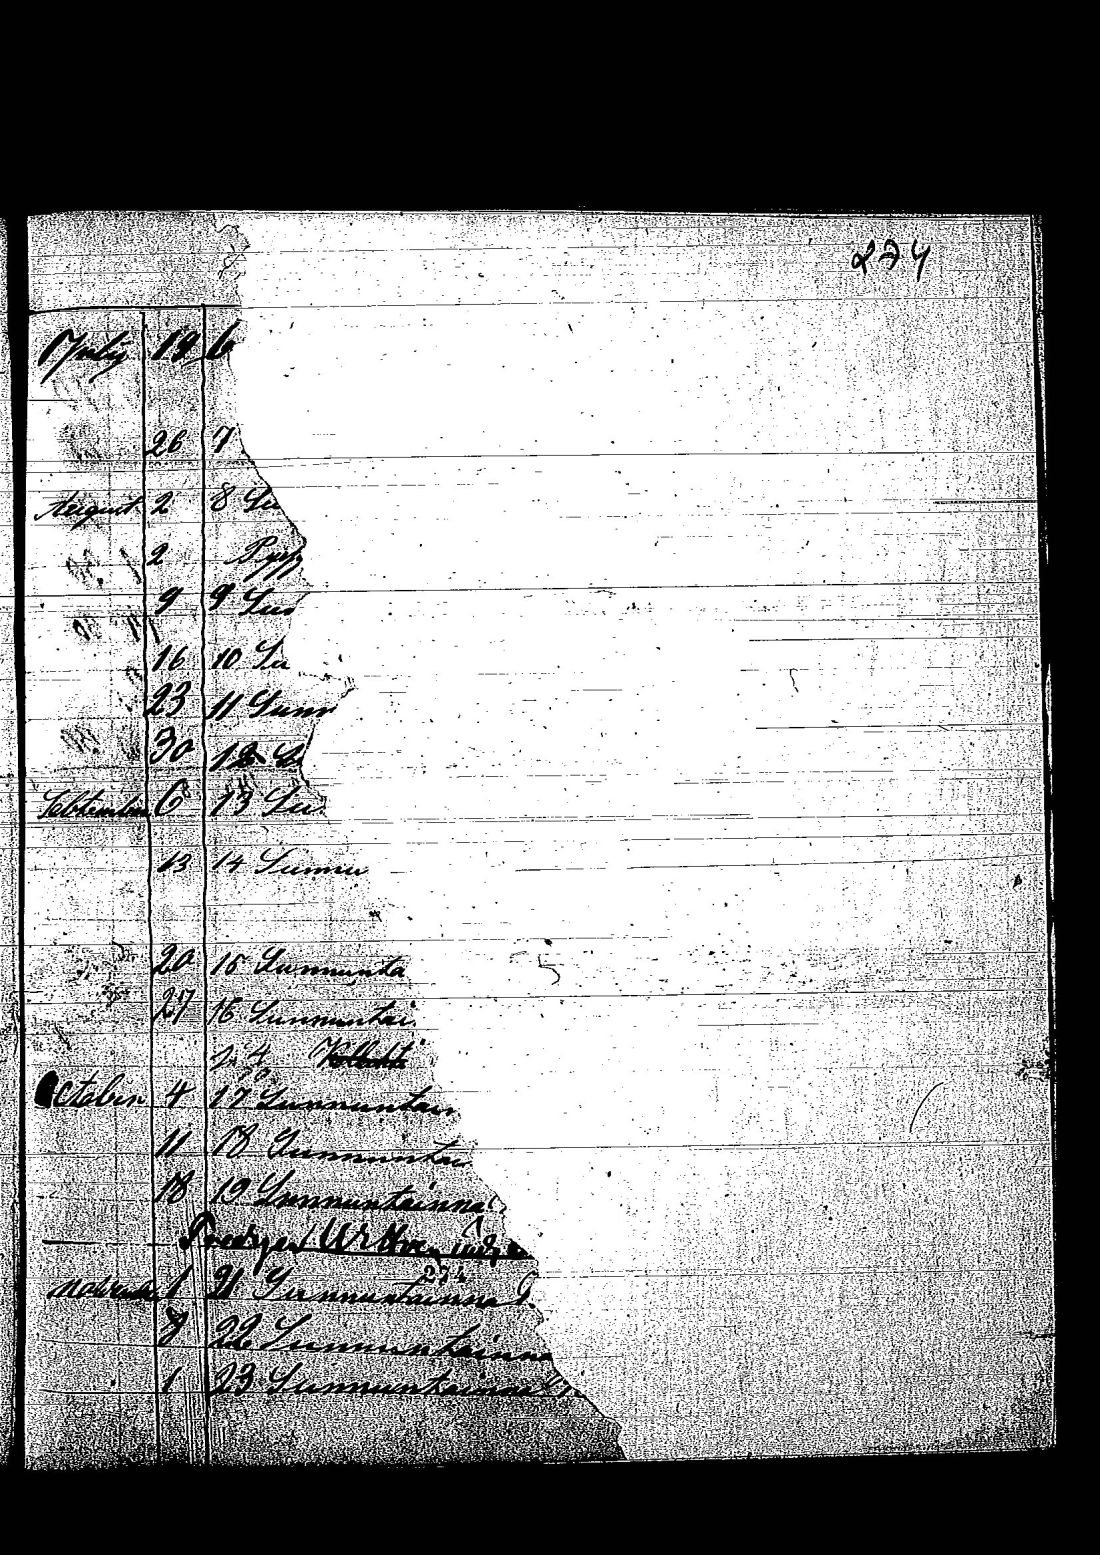 274
July 19 6
26 7
August 2 8 Su
2 Pyh
9 9 Sun
16 10 Su
23 11 Sunn
30 12 S
September 6 13 Su
13 14 Sunnu
20 15 Sunnunta
27 16 Sunnuntai
24 Kollehti
October 4 17 Sunnuntain
11 18 Sunnuntai
18 19 Sunnuntainna
274
1 21 Sunnuntainna
8 22 Sunnuntainna
1 23 Sunnuntainna